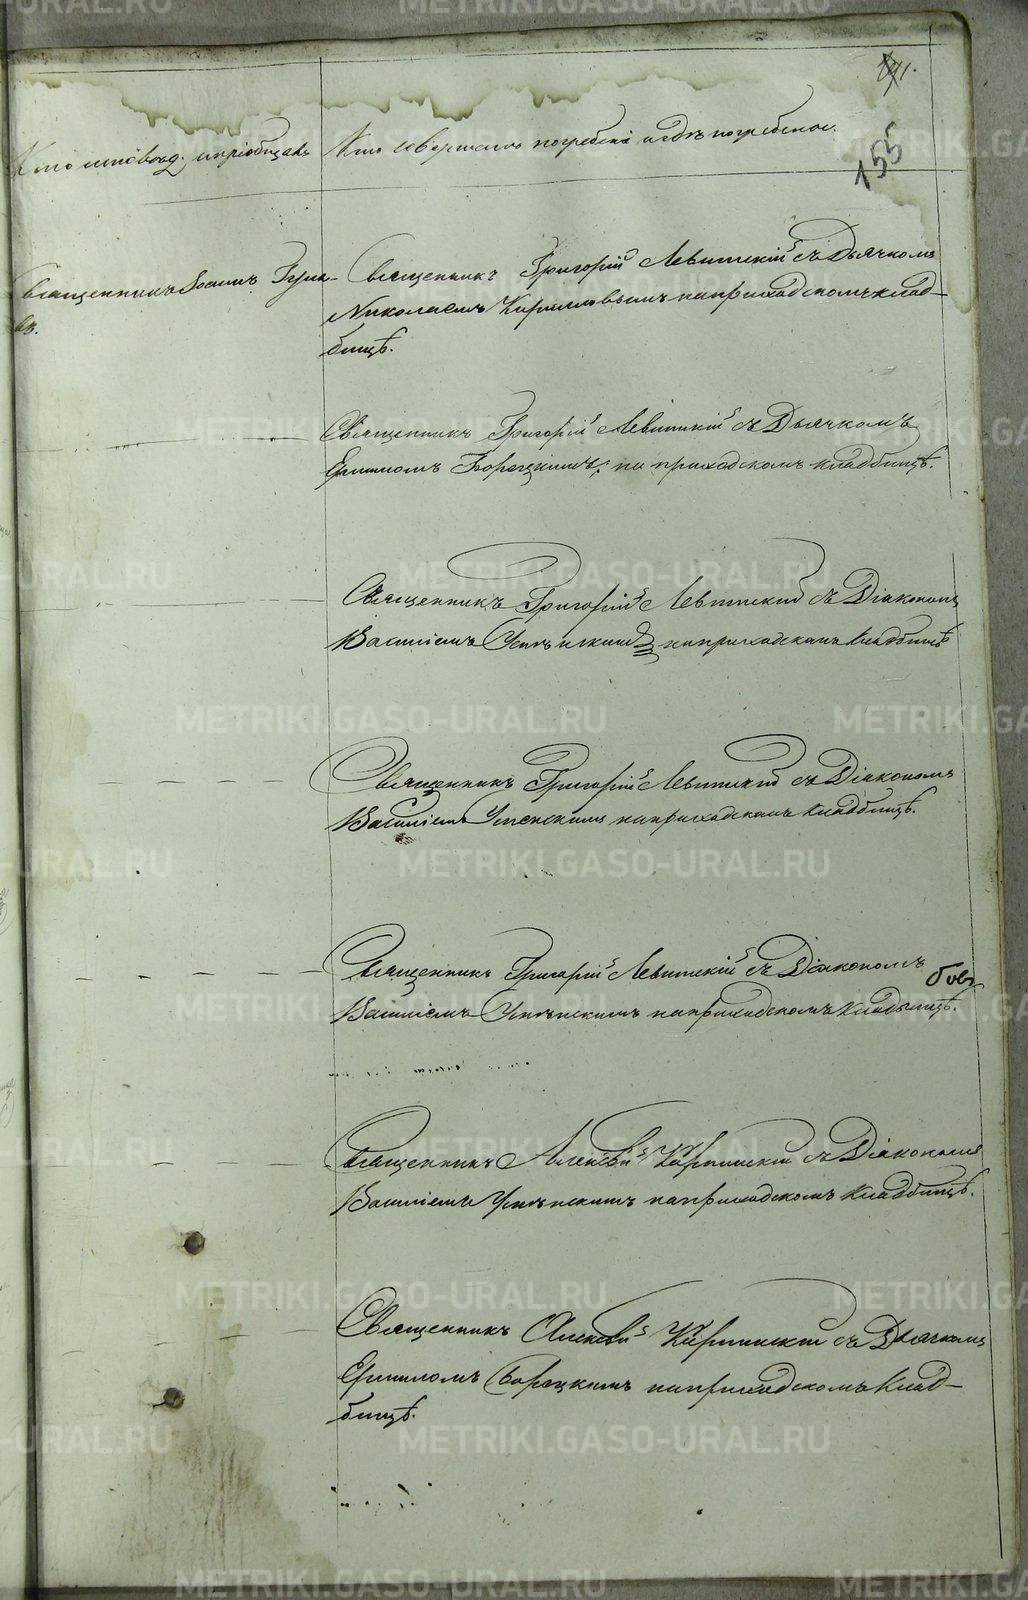 155
Кто исповѣд. и пріобщалъ
Кто совершалъ погребеніе и гдѣ погребены.
Священникъ Іоаннъ
въ.
Священникъ Григорій Левитскій съ Дьячкомъ
Николаемъ Кирилловымъ на приходскомъ клад-
бищѣ.
Священникъ Григорій Левитскій съ Дьячкомъ
Ермиломъ Борецкимъ, на приходскомъ кладбищѣ.
Священникъ Григорій Левитскій съ Діакономъ
Василіемъ Успѣнскимъ на приходскомъ кладбищѣ
Священникъ Григорій Левитскій съ Діакономъ
Василіемъ Успенскимъ на приходскомъ кладбищѣ.
Священникъ Григорій Левитскій съ Діакономъ
Василіемъ Успѣнскимъ на приходскомъ кладбищѣ.
Священникъ Алексѣй Карпинскій съ Діакономъ
Василіемъ Успѣнскимъ на приходскомъ кладбищѣ.
Священникъ Алексѣй Карпинскій съ Дьячкомъ
Ермиломъ Борецкимъ на приходскомъ клад-
бищѣ.
METRIKI.GASO-URAL.RU